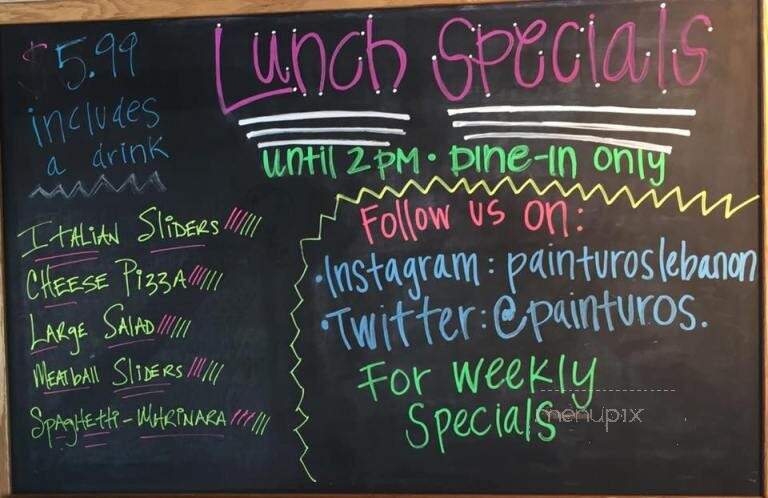 Lunch Specials
until 2 PM · Dine-In only
$5.99
includes
a drink
Italian Sliders
Cheese Pizza
Large Salad
Meatball Sliders
Spaghetti - Marinara
Follow us on:
·Instagram: painturoslebanon
·Twitter: @painturos.
For weekly
Specials
menupix